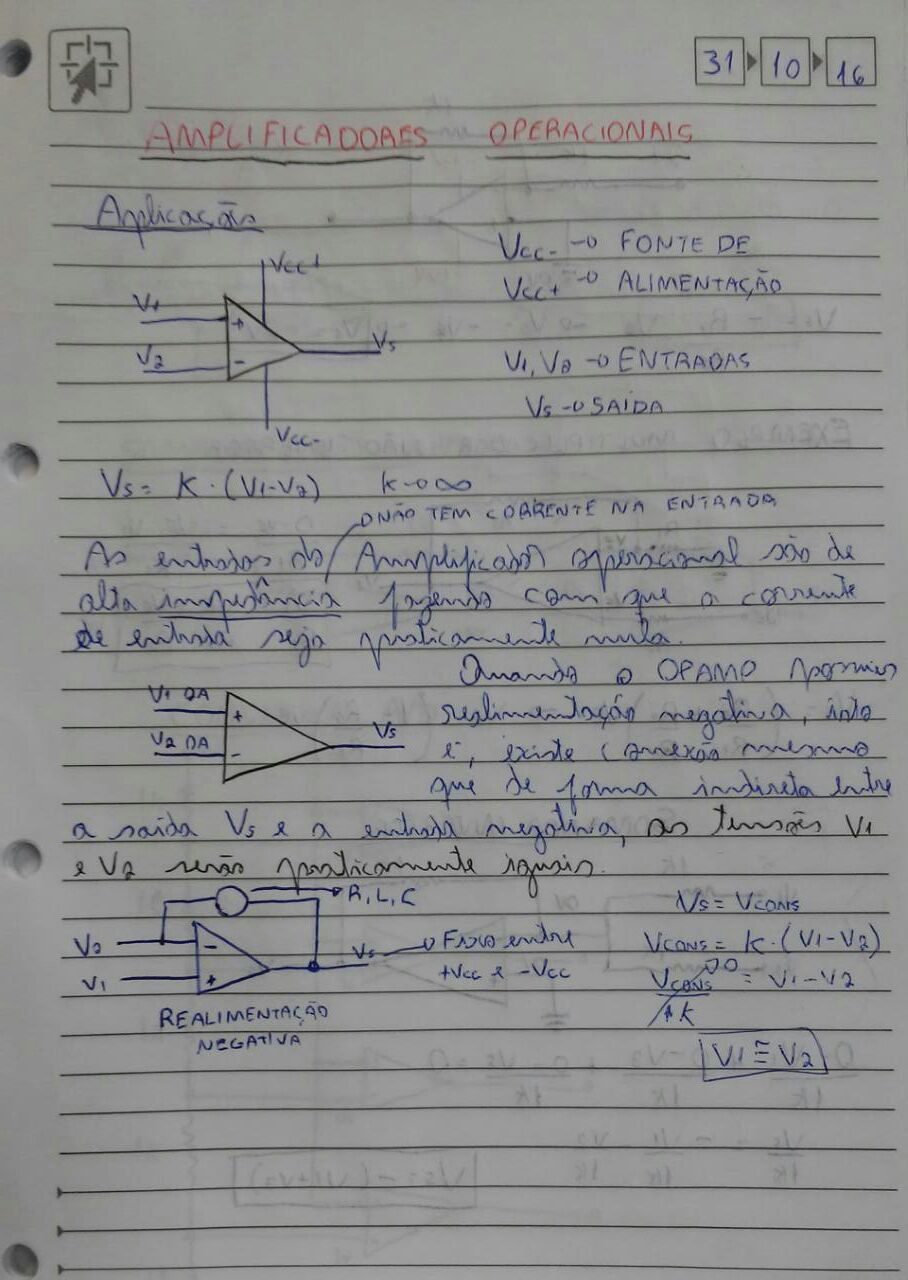 31 10 16
AMPLIFICADORES OPERACIONAIS
Aplicação
Vcc+
V1
+
V2
-
Vs
Vcc-
Vcc- → FONTE DE
Vcc+ → ALIMENTAÇÃO
V1, V2 → ENTRADAS
Vs → SAÍDA
Vs = K · (V1-V2) K → ∞
→ NÃO TEM CORRENTE NA ENTRADA
As entradas do Amplificador operacional são de
alta impedância fazendo com que a corrente
de entrada seja praticamente nula.
Quando o OPAMP possui
V1 0A
+
V2 0A
-
Vs
realimentação negativa, isto
é, existe conexão mesmo
que de forma indireta entre
a saída Vs e a entrada negativa, as tensões V1
e V2 serão praticamente iguais.
→ R, L, C
V2
-
V1
+
Vs → Fixo entre
+Vcc e -Vcc
REALIMENTAÇÃO
NEGATIVA
Vs = Vcons
Vcons = K · (V1-V2)
Vcons/↑K → 0 = V1-V2
V1 ≅ V2